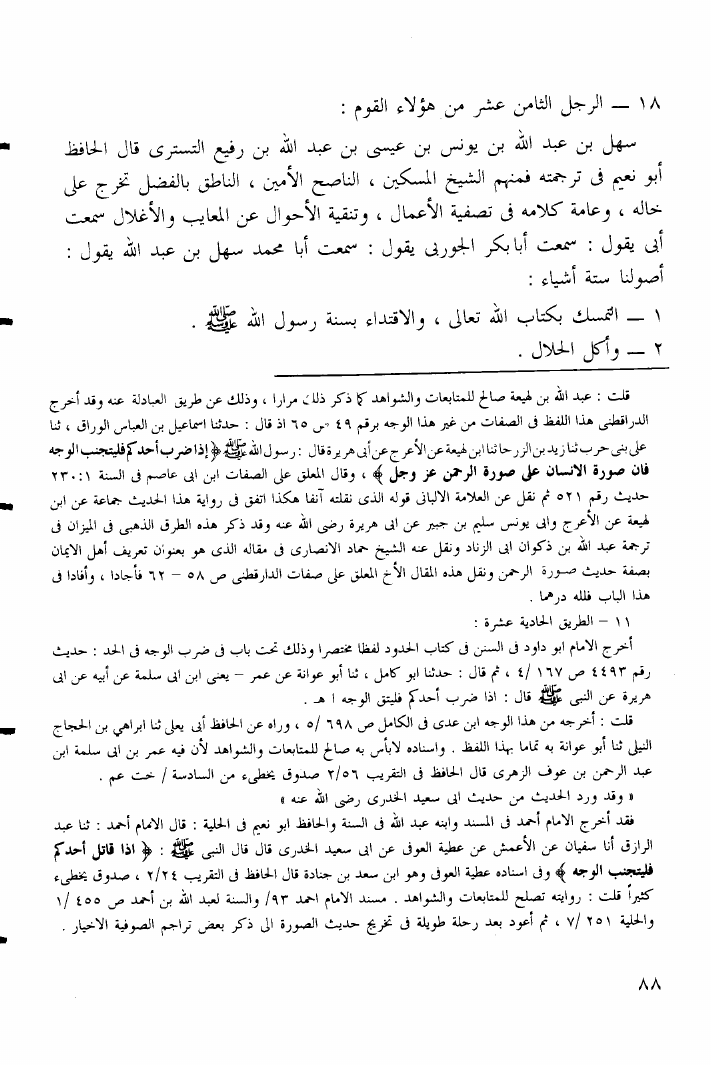 ١٨ — الرجل الثامن عشر من هؤلاء القوم :
سهل بن عبد الله بن يونس بن عيسى بن عبد الله بن رفيع التسترى قال الحافظ
أبو نعيم فى ترجمته فمنهم الشيخ المسكين ، الناصح الأمين ، الناطق بالفضل تخرج على
خاله ، وعامة كلامه فى تصفية الأعمال ، وتنقية الأحوال عن المعايب والأغلال سمعت
أبى يقول : سمعت أبا بكر الجوربى يقول : سمعت أبا محمد سهل بن عبد الله يقول :
أصولنا ستة أشياء :
١ — التمسك بكتاب الله تعالى ، والاقتداء بسنة رسول الله ﷺ .
٢ — وأكل الحلال .
قلت : عبد الله بن لهيعة صالح للمتابعات والشواهد كما ذكر ذلك مرارا ، وذلك عن طريق العبادلة عنه وقد أخرج
الدراقطنى هذا اللفظ فى الصفات من غير هذا الوجه برقم ٤٩ ص ٦٥ اذ قال : حدثنا اسماعيل بن العباس الوراق ، ثنا
على بنى حرب ثنا زيد بن الزرحا ثنا ابن لهيعة عن الأعرج عن أبى هريرة قال : رسول الله ﷺ ﴿ إذا ضرب أحدكم فليتجنب الوجه
فان صورة الانسان على صورة الرحمن عز وجل ﴾ ، وقال المعلق على الصفات ابن ابى عاصم فى السنة ٢٣٠:١
حديث رقم ٥٢١ ثم نقل عن العلامة الالبانى قوله الذى نقلته آنفا هكذا اتفق فى رواية هذا الحديث جماعة عن ابن
لهيعة عن الأعرج وابى يونس سليم بن جبير عن ابى هريرة رضى الله عنه وقد ذكر هذه الطرق الذهبى فى الميزان فى
ترجمة عبد الله بن ذكوان ابى الزناد ونقل عنه الشيخ حماد الانصارى فى مقاله الذى هو بعنوان تعريف أهل الايمان
بصفة حديث صورة الرحمن ونقل هذه المقال الأخ المعلق على صفات الدارقطنى ص ٥٨ – ٦٢ فأجادا ، وأفادا فى
هذا الباب فلله درهما .
١١ – الطريق الحادية عشرة :
أخرج الامام ابو داود فى السنن فى كتاب الحدود لفظا مختصرا وذلك تحت باب فى ضرب الوجه فى الحد : حديث
رقم ٤٤٩٣ ص ١٦٧ /٤ ، ثم قال : حدثنا ابو كامل ، ثنا أبو عوانة عن عمر – يعنى ابن ابى سلمة عن أبيه عن ابى
هريرة عن النبى ﷺ قال : اذا ضرب أحدكم فليتق الوجه ا هـ .
قلت : أخرجه من هذا الوجه ابن عدى فى الكامل ص ٦٩٨ /٥ ، وراه عن الحافظ أبى يعلى ثنا ابراهي بن الحجاج
النيلى ثنا أبو عوانة به تماما بهذا اللفظ . واسناده لابأس به صالح للمتابعات والشواهد لأن فيه عمر بن ابى سلمة ابن
عبد الرحمن بن عوف الزهرى قال الحافظ فى التقريب ٢/٥٦ صدوق يخطىء من السادسة / خت عم .
« وقد ورد الحديث من حديث ابى سعيد الخدرى رضى الله عنه »
فقد أخرج الامام أحمد فى المسند وابنه عبد الله فى السنة والحافظ ابو نعيم فى الحلية : قال الامام أحمد : ثنا عبد
الرازق أنا سفيان عن الأعمش عن عطية العوفى عن ابى سعيد الخدرى قال قال النبى ﷺ : ﴿ اذا قاتل أحدكم
فليتجنب الوجه ﴾ وفى اسناده عطية العوفى وهو ابن سعد بن جنادة قال الحافظ فى التقريب ٢/٢٤ ، صدوق يخطىء
كثيراً قلت : روايته تصلح للمتابعات والشواهد . مسند الامام احمد ٩٣/ والسنة لعبد الله بن أحمد ص ٤٥٥ /١
والحلية ٢٥١ /٧ ، ثم أعود بعد رحلة طويلة فى تخريج حديث الصورة الى ذكر بعض تراجم الصوفية الاخيار .
٨٨